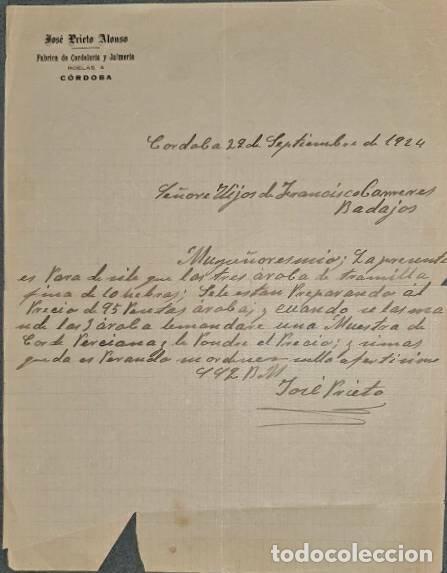 José Prieto Alonso
Fabrica de Cordelería y Jalmería
ROELAS, 4
CÓRDOBA
Cordoba 29 de Septiembre de 1924
Señore Hijos de Francisco Carreres
Badajos
Muy señores mio; La presente
es para desile que las tres àroba de tramilla
fina de 10 hebras; Se le estan Preparando al
Precio de 95 Pesetas àroba, y cuando se las man
de las 3 àroba le mandare una Muestra de
Corte Perciana y le Pondre el Precio; y sin mas
queda esperando su
442 B M
José Prieto
todocoleccion.net